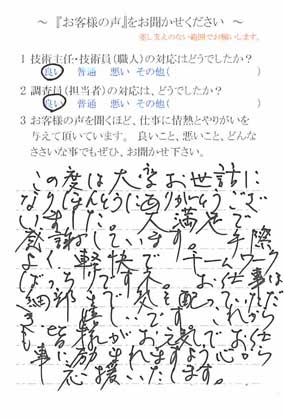 ～ 『お客様の声』をお聞かせください ～
差し支えのない範囲でお願いします。
1 技術主任・技術員(職人)の対応はどうでしたか？
良い 普通 悪い その他( )
2 調査員(担当者)の対応は、どうでしたか？
良い 普通 悪い その他( )
3 お客様の声を聞くほど、仕事に情熱とやりがいを
与えて頂いています。 良いこと、悪いこと、どんな
ささいな事でもぜひ、お聞かせ下さい。
この度は大変お世話に
なりほんとうにありがとうござ
いました。 大満足で
感謝しています。 手際
よく 軽快で チームワーク
ばっちりです。 お仕事は
細部まで気を配っていただ
き 嬉しいです。 これから
も皆様がお元気でお仕
事に励まれますよう心から
応援いたします。